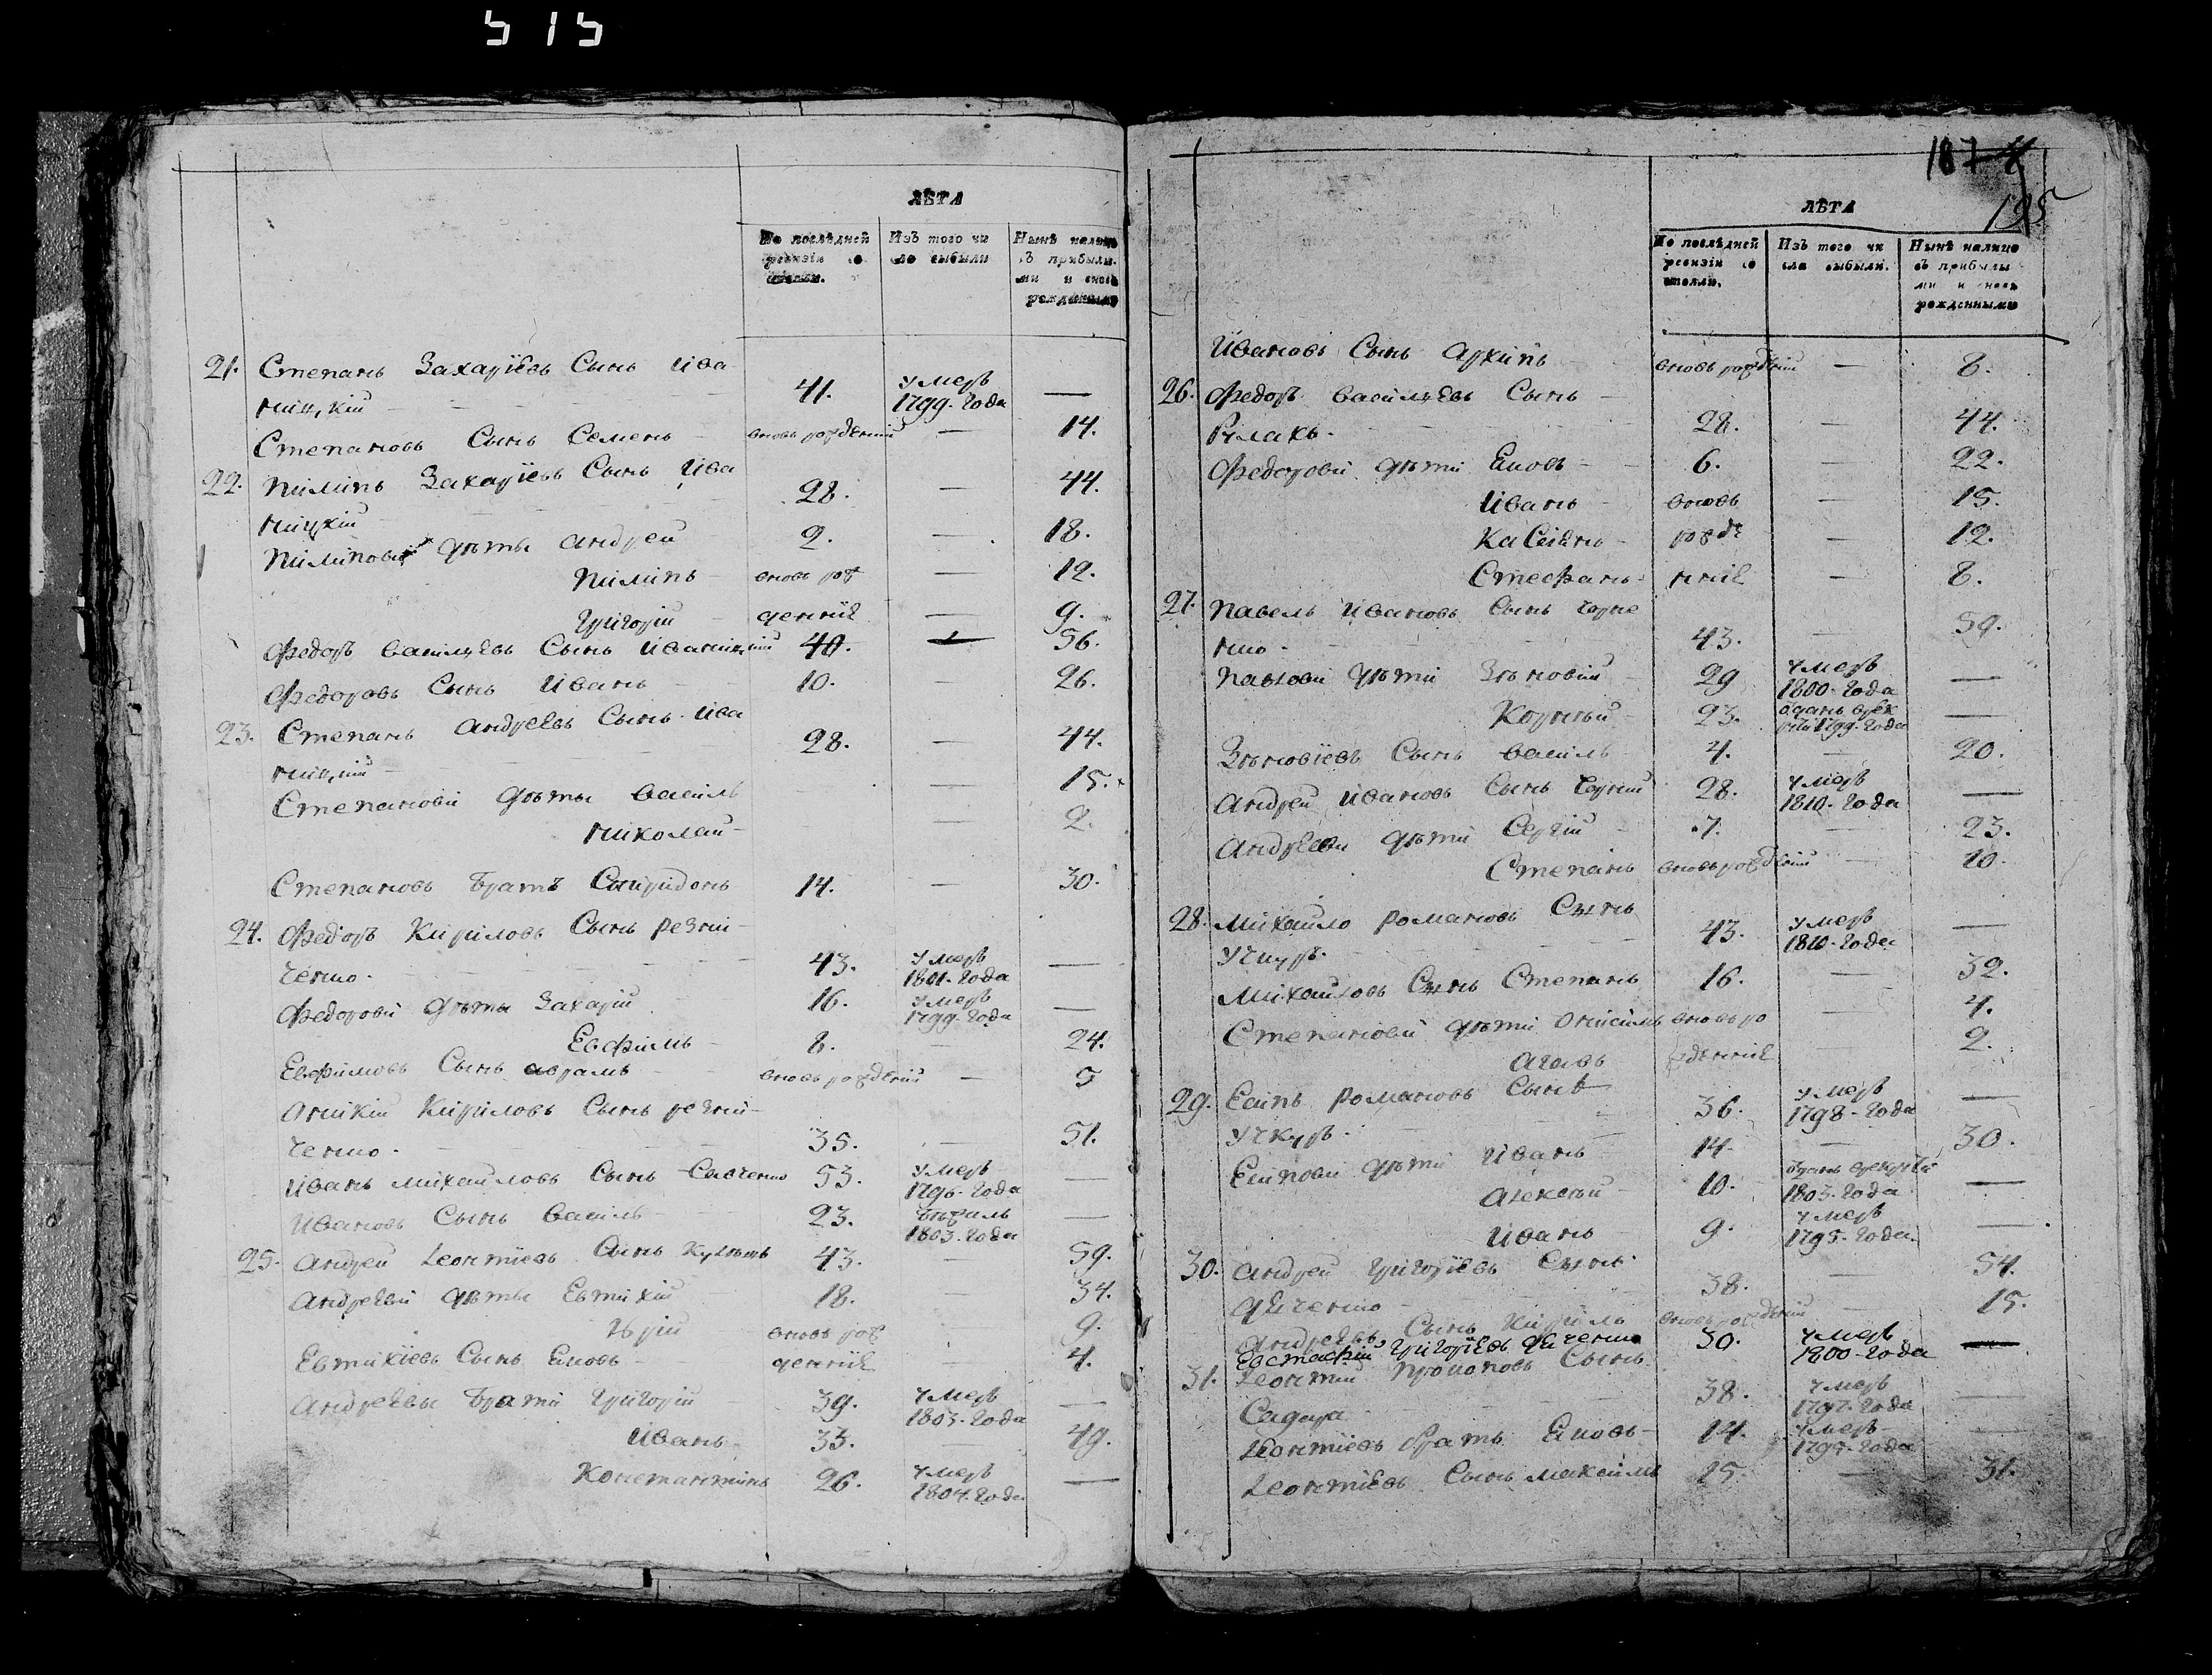 515
ЛѢТА
По послѣдней ревизіи со стояли.
Изъ того чи сла выбыли
Нынѣ налицо съ прибылы ми и вновь рожденными
21. Степанъ Захаріевъ Сынъ Ива
ницкій 41. умеръ 1799. года —
Степановъ Сынъ Семенъ вновь рожденній — 14.
22. Пилипъ Захаріевъ Сынъ Ива
ницкій 28. — 44.
Пилипови дѣты андрей 2. — 18.
Пилипъ вновь рож — 12.
Григорій денніе — 9.
Федоръ василіевъ Сынъ Иваницкій 40. — 56.
Федоровъ Сынъ Иванъ 10. — 26.
23. Степанъ андреевъ Сынъ Ива
ницкій 28. — 44.
Степановы дѣты василь — 15.
николай — 2.
Степановъ братъ Спиридонъ 14. — 30.
24. Федоръ Кириловъ Сынъ резни
ченко. 43. умеръ 1801. года —
Федорови дѣты Захарій 16. умеръ 1799. года —
Евфимъ 8. — 24.
Евфимовъ Сынъ аврамъ вновь рожденій — 5
Кириловъ Сынъ резни
ченко. 35. — 51.
иванъ михайловъ Сынъ Савченко 53. умеръ 1796. года —
ивановъ Сынъ василь 23. бѣжалъ 1803. года —
25. андрей леонтіевъ Сынъ 43. — 59.
андреевы дѣты Евтихій 18. — 34.
Юрій вновь рож — 9.
Евтихіевъ Сынъ Еновъ денніе — 4.
андреевы брати григорій 39. умеръ 1803. года —
иванъ 33. — 49.
Константинъ 26. умеръ 1804. года —
187
195
ЛѢТА
По послѣдней ревизіи со стояли.
Изъ того чи сла выбыли.
Нынѣ налицо съ прибылы ми и новь рожденными
Ивановъ Сынъ архипъ вновь рожденій — 8.
26. Федоръ василіевъ Сынъ
28. — 44.
Федорови дѣти Еновъ 6. — 22.
иванъ вновь — 15.
Касіянъ рожде — 12.
Стефанъ нніе — 8.
27. Павелъ ивановъ Сынъ черне
нко 43. — 59.
Павлови дѣти Зѣновій 29 умеръ 1800. года —
Корній 23. отданъ врек рути 1799. года —
Зѣновіевъ Сынъ василь 4. — 20.
андрей ивановъ Сынъ черній 28. умеръ 1810. года —
андреевы дѣти Сергій 7. — 23.
Степанъ вновь рожденій — 10.
28. Михайло романовъ Сынъ
Учкуръ. 43. умеръ 1810. года —
Михайловъ Сынъ Степанъ 16. — 32.
Степановы дѣти онисимъ вновь ро — 4.
жденніе — 2.
29. Есипъ романовъ Сынъ
Учкуръ. 36. умеръ 1798. года —
Есипови дѣти иванъ 14. — 30.
алексѣй 10. отданъ врекруты 1803. года —
иванъ 9. умеръ 1795. года. —
30. андрей григоріевъ Сынъ
38. — 54.
андреевъ Сынъ Кирилъ вновь рожденій — 15.
Евстафій григоріевъ 30. умеръ 1800. года —
31. леонтій прокоповъ Сынъ
38. умеръ 1797. года —
леонтіевъ братъ Еновъ 14. умеръ —
леонтіевъ Сынъ максимъ 15. — 31.